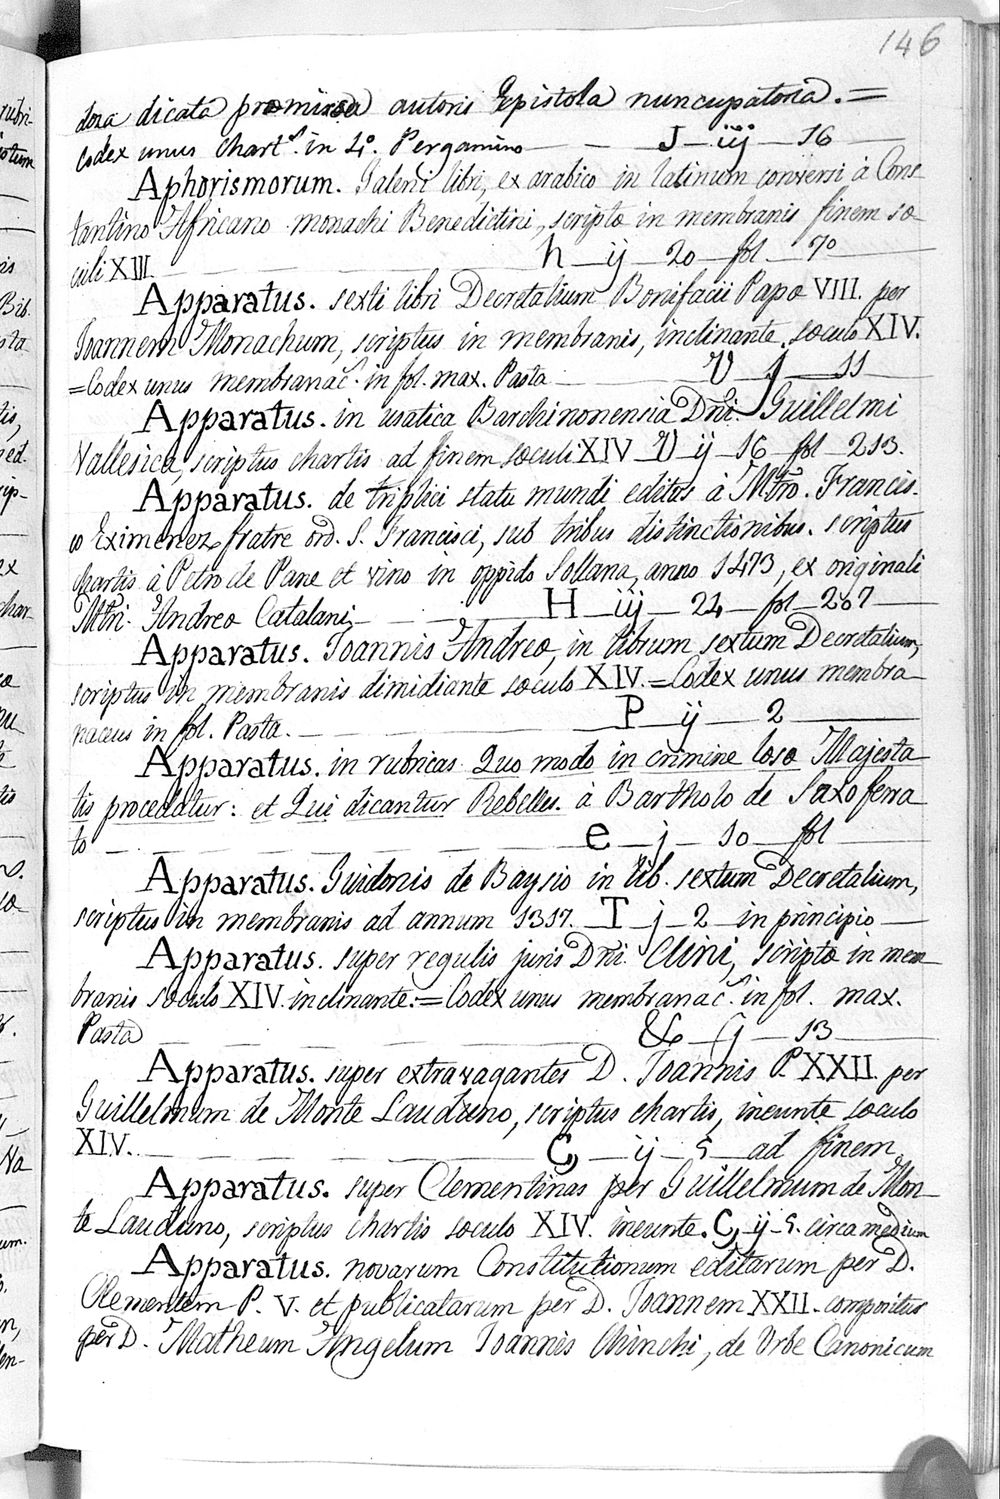 146
dora dicata præmissa autoris Epistola nuncupatoria.=
Codex unus chart.s in 4.º Pergamino — J — iij — 16
Aphorismorum. Galeni libri, ex arabico in latinum conversi à Cons
tantino Africano monachi Benedictini, scripto in membranis finem sæ
culi XIII. — h — ij — 20 — fol. — 70
Apparatus. sexti libri Decretalium Bonifacii Papæ VIII. per
Joannem Monachum, scriptus in membranis, inclinante sæculo XIV.
=Codex unus membranac.s in fol. max. Pasta — V — j — 11
Apparatus. in usatica Barchinonensia Dñi. Guillelmi
Vallesica, scriptus chartis ad finem sæculi XIV — V — ij — 16 — fol — 213.
Apparatus. de triplici statu mundi editus à Mtro. Francis-
co Eximenez fratre ord. S. Francisci, sub tribus distinctionibus. scriptus
chartis à Petro de Pane et vino in oppido Sollana, anno 1473, ex originali
Mtri. Andreæ Catalani — H — iij — 24 — fol — 207
Apparatus. Joannis Andreæ, in librum sextum Decretalium,
scriptus in membranis dimidiante sæculo XIV.=Codex unus membra
naceus in fol. Pasta. — P — ij — 2
Apparatus. in rubricas Quo modo in crimine læsæ Majesta
tis procedatur: et Qui dicantur Rebelles. à Bartholo de Saxoferra
to — e — j — 10 — fol
Apparatus. Guidonis de Baysio in lib. sextum Decretalium,
scriptus in membranis ad annum 1317. — T — j — 2 — in principio
Apparatus. super regulis juris Dñi. Clini, scripto in mem
branis sæculo XIV. inclinante.=Codex unus membranac.s in fol. max.
Pasta — & — j — 13
Apparatus. super extravagantes D. Joannis P. XXII. per
Guillelmum de Monte Lauduno, scriptus chartis, ineunte sæculo
XIV. — C, — ij — 5 — ad finem
Apparatus. super Clementinas per Guillelmum de Mon-
te Lauduno, scriptus chartis sæculo XIV. ineunte. C, — ij — 5. circa medium
Apparatus. novarum Constitutionum editarum per D.
Clementem P. V. et publicatarum per D. Joannem XXII. compositus
per D. Matheum Angelum Joannis Chinchi, de Urbe Canonicum